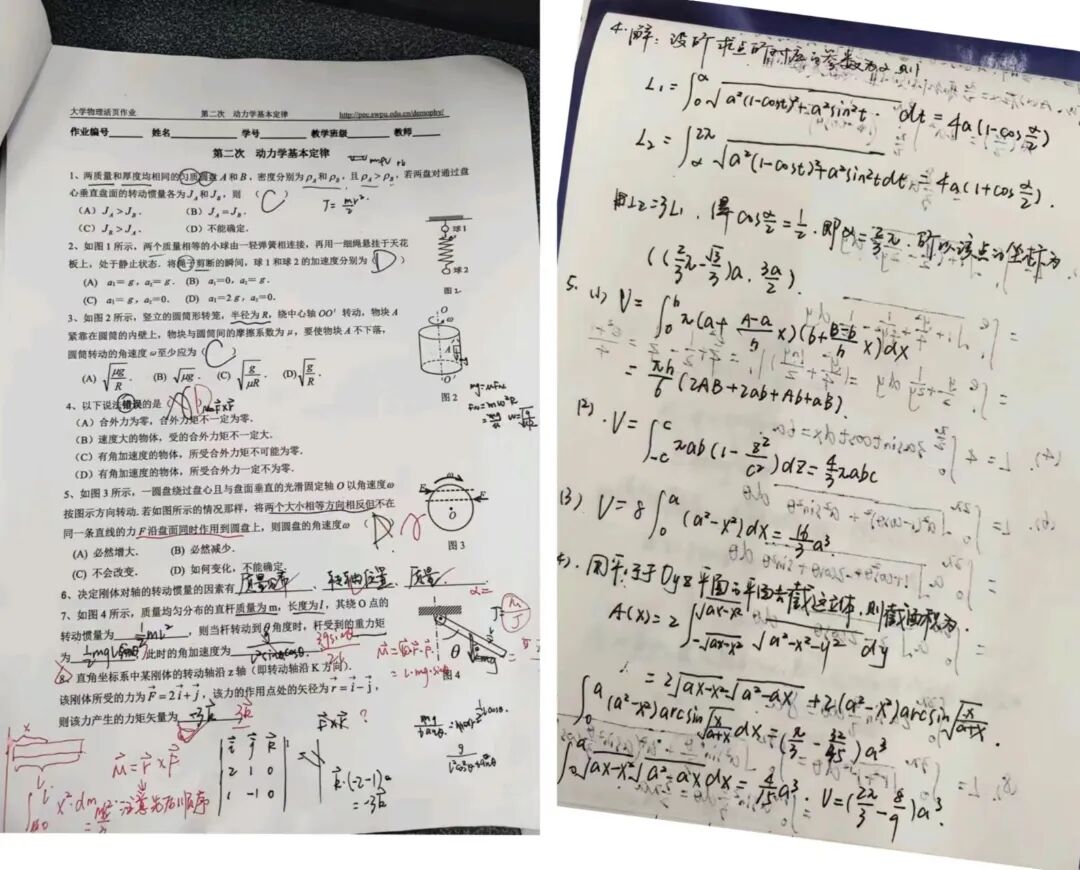 大学物理活页作业 第二次 动力学基本定律 http://pec.swpu.edu.cn/demophy/
作业编号 姓名 学号 教学班级 教师
第二次 动力学基本定律
1、两质量和厚度均相同的匀质圆盘 A 和 B，密度分别为 ρA 和 ρB，且 ρA > ρB，若两盘对通过盘
心垂直盘面的转动惯量各为 JA 和 JB，则（C）
(A) JA > JB. (B) JA = JB.
(C) JB > JA. (D) 不能确定.
2、如图 1 所示，两个质量相等的小球由一轻弹簧相连接，再用一细绳悬挂于天花
板上，处于静止状态．将绳子剪断的瞬间，球 1 和球 2 的加速度分别为（D）
(A) a₁ = g，a₂ = g. (B) a₁=0，a₂= g.
(C) a₁= g，a₂=0. (D) a₁=2 g，a₂=0.
球1
球2
图 1
3、如图 2 所示，竖立的圆筒形转笼，半径为 R，绕中心轴 OO′ 转动，物块 A
紧靠在圆筒的内壁上，物块与圆筒间的摩擦系数为 μ，要使物块 A 不下落，
圆筒转动的角速度 ω 至少应为（C）
(A) √(μg/R). (B) √(μg). (C) √(g/(μR)). (D) √(g/R).
图 2
4、以下说法错误的是（
(A) 合外力为零，合外力矩不一定为零．
(B) 速度大的物体，受的合外力矩不一定大．
(C) 有角加速度的物体，所受合外力矩不可能为零．
(D) 有角加速度的物体，所受合外力一定不为零．
5、如图 3 所示，一圆盘绕过盘心且与盘面垂直的光滑固定轴 O 以角速度 ω
按图示方向转动．若如图所示的情况那样，将两个大小相等方向相反但不在
同一条直线的力 F 沿盘面同时作用到圆盘上，则圆盘的角速度 ω （D
(A) 必然增大． (B) 必然减少．
(C) 不会改变． (D) 如何变化，不能确定．
图 3
6、决定刚体对轴的转动惯量的因素有 质量分布、转轴的位置、质量．
7、如图 4 所示，质量均匀分布的直杆质量为 m，长度为 l，其绕 O 点的
转动惯量为 ，则当杆转动到 θ 角度时，杆受到的重力矩
为 ，此时的角加速度为
图 4
8、直角坐标系中某刚体的转动轴沿 z 轴（即转动轴沿 K 方向）．
该刚体所受的力为 F = 2i + j，该力的作用点处的矢径为 r = i − j，
则该力产生的力矩矢量为 -3k 3k
M = r × F
注意先后顺序
i j k
2 1 0
1 -1 0
k·(-2-1)
= -3k
4. 解：设所求点所对应的参数为α，则
L₁ = ∫₀^α √(a²(1-cost)²+a²sin²t) · dt = 4a(1-cos α/2)
L₂ = ∫_α^2π √(a²(1-cost)²+a²sin²t) dt = 4a(1+cos α/2).
由L₂=3L₁，得 cos α/2 = 1/2．即 α = 2/3 π．所以该点的坐标为
((2/3 π - √3/2)a, 3a/2).
5. (1) V = ∫₀^h π(a + (A-a)/h x)(b + (B-b)/h x)dx
= πh/6 (2AB+2ab+Ab+aB).
(2). V = ∫_-c^c πab(1 - z²/c²)dz = 4/3 πabc
(3) V = 8∫₀^a (a²-x²)dx = 16/3 a³.
4). 用平行于Oyz平面的平面去截这立体，则截面积为．
A(x) = 2∫_-√(ax-x²)^√(ax-x²) √(a²-x²-y²) dy
= 2√(ax-x²)√(a²-ax) + 2(a²-x²)arcsin√(x/(a+x)).
∫₀^a (a²-x²)arcsin√(x/(a+x)) dx = (π/3 - 32/45)a³
∫₀^a √(ax-x²)√(a²-ax) dx = 4/15 a³. V = (2π/3 - 8/9)a³.